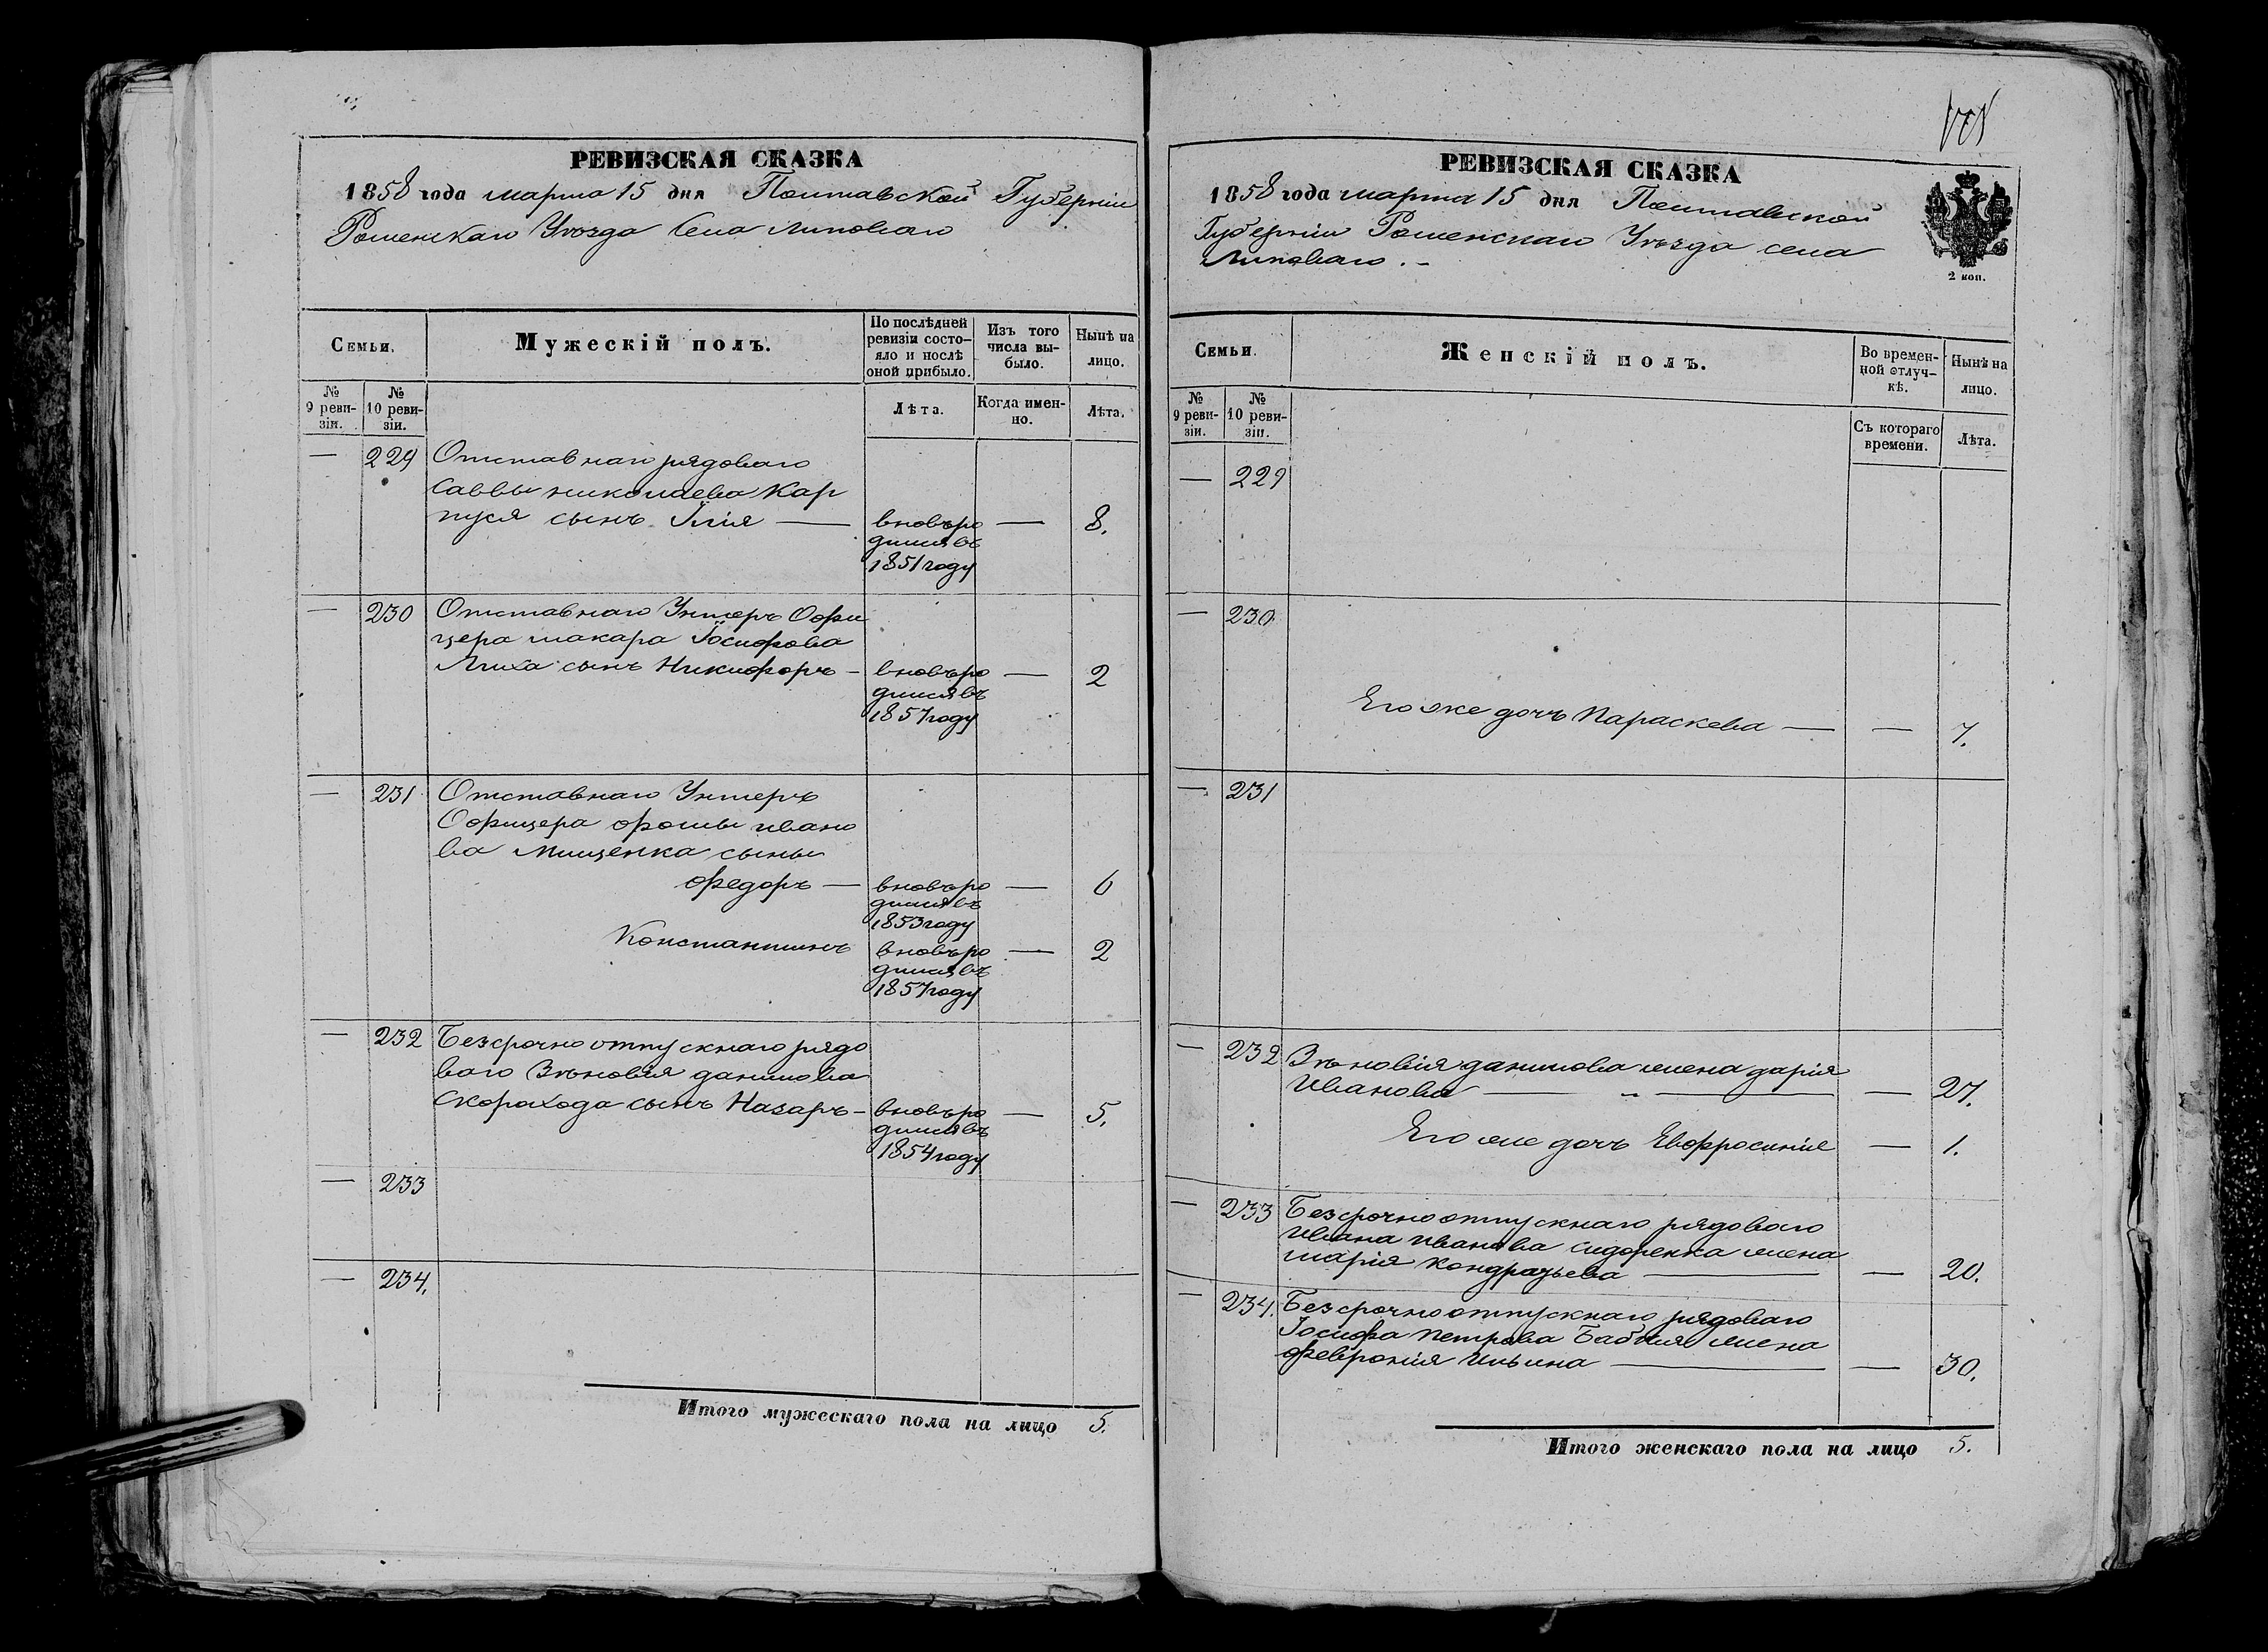 РЕВИЗСКАЯ СКАЗКА
1858 года марта 15 дня Полтавской Губерніи
Роменскаго Уѣзда Села Липоваго
Семьи.
Мужескій полъ.
По послѣдней ревизіи состояло и послѣ оной прибыло.
Изъ того числа выбыло.
Нынѣ на лицо.
№ 9 ревизіи.
№ 10 ревизіи.
Лѣта.
Когда именно.
Лѣта.
— 229 Отставнаго рядоваго
Саввы николаева Кар
пуся сынъ Илія — вновьро — 8.
дился въ
1851 году
— 230 Отставнаго Унтеръ Офи
цера макара Іосифова
Лиха сынъ Никифоръ — вновьро — 2
дился въ
1857 году
— 231 Отставнаго Унтеръ
Офицера фомы ивано
ва Мищенка сыны
федоръ — вновьро — 6
дился въ
1853 году
Константинъ вновьро — 2
дился въ
1857 году
— 232 Безсрочно отпускнаго рядо
ваго Зѣновія данилова
Скорохода сынъ Назаръ — вновьро — 5.
дился въ
1854 году
— 233
— 234.
Итого мужескаго пола на лицо 5.
РЕВИЗСКАЯ СКАЗКА
1858 года марта 15 дня Полтавской
Губерніи Роменскаго Уѣзда села
Липоваго. –
2 коп.
Семьи.
Женскій полъ.
Во временной отлучкѣ.
Нынѣ на лицо.
№ 9 ревизіи.
№ 10 ревизіи.
Съ котораго времени.
Лѣта.
— 229
— 230
Его же дочь Параскева — — 7.
— 231
— 232 Зѣновія данилова жена дарія
Иванова — „ — — 27.
Его же дочь Евфросинія — 1.
— 233 Безсрочно отпускнаго рядоваго
Ивана Иванова Сидоренка жена
марія Кондратьева — — 20.
— 234. Безсрочно отпускнаго рядоваго
Іосифа Петрова жена
феврония Ильина — — 30.
Итого женскаго пола на лицо 5.